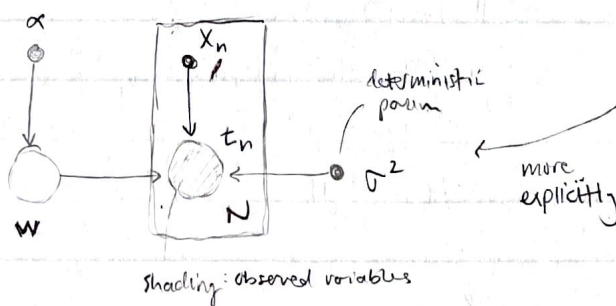 α
xₙ
deterministic
param
tₙ
σ²
more
explicitly
w
N
shading: observed variables